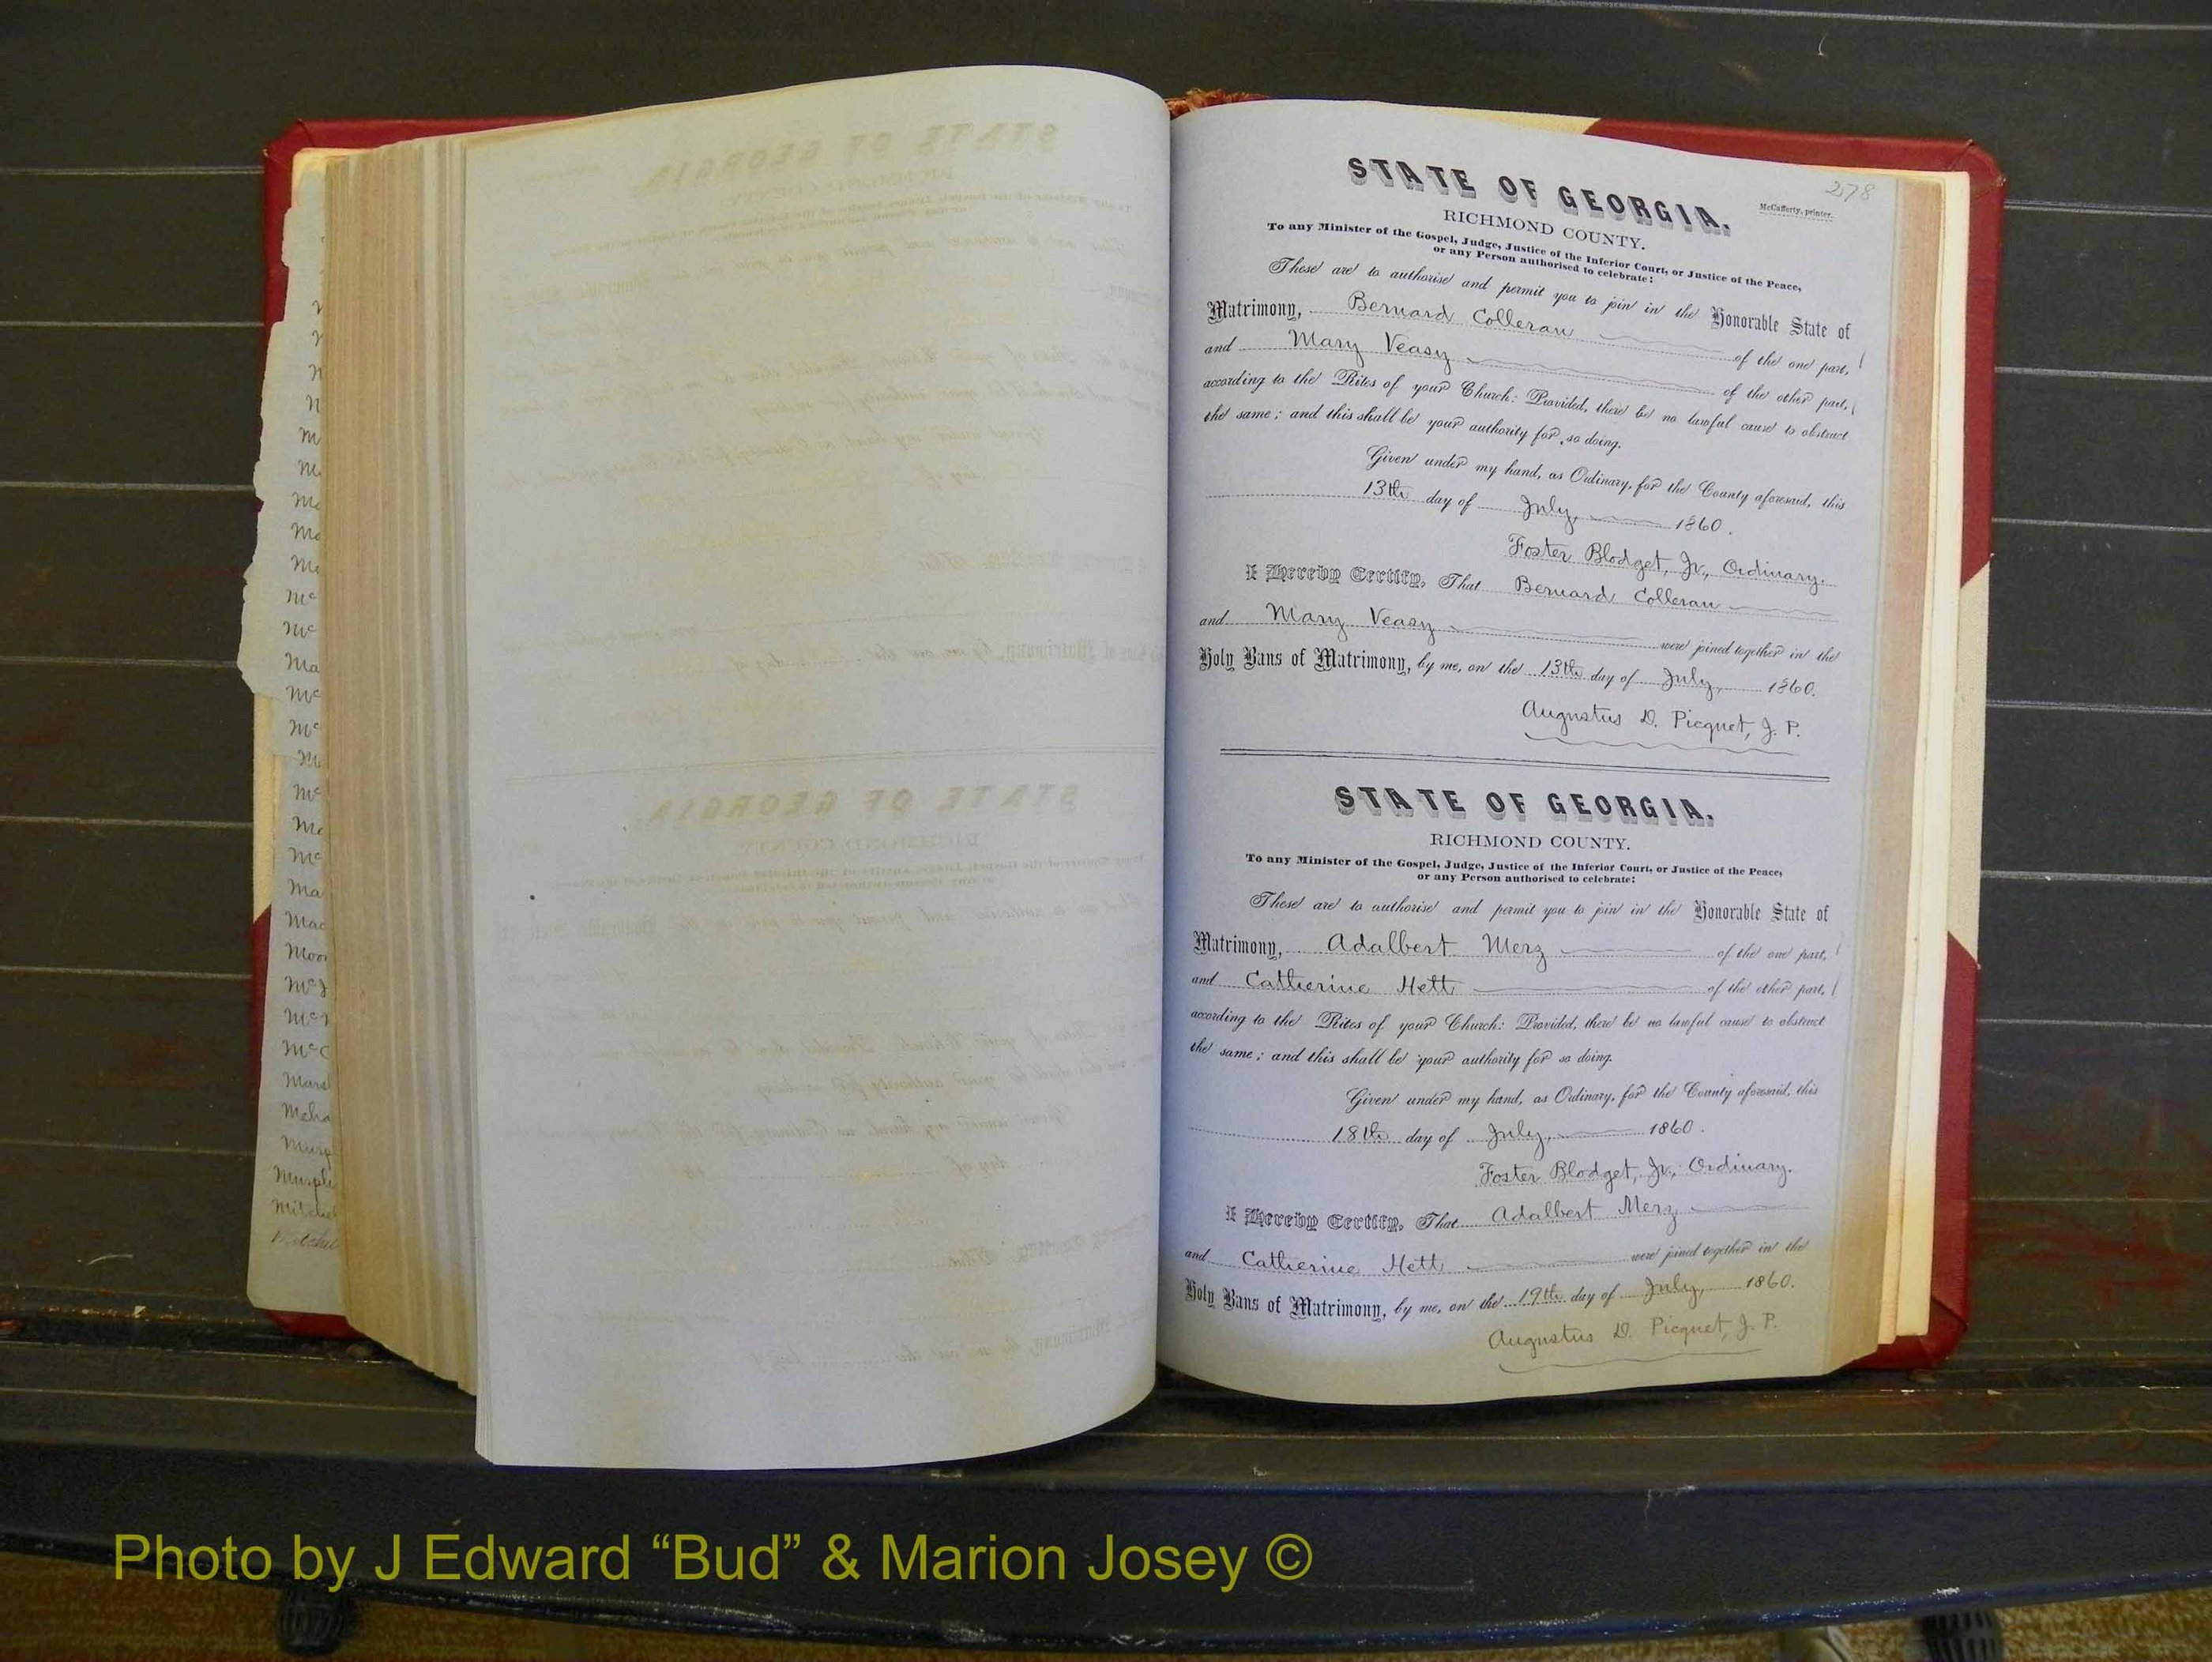 m
Ma
Mc
Mc
Ma
Mc
Mc
Mc
Ma
Mac
Moo
Mc
Mc
McC
Mars
Meha
Murp
Murph
Mitchel
Mitchel
278
STATE OF GEORGIA.
McCafferty, printer.
RICHMOND COUNTY.
To any Minister of the Gospel, Judge, Justice of the Inferior Court, or Justice of the Peace,
or any Person authorised to celebrate:
These are to authorise and permit you to join in the Honorable State of
Matrimony, Bernard Colleran of the one part,
and Mary Veasy of the other part,
according to the Rites of your Church: Provided, there be no lawful cause to obstruct
the same; and this shall be your authority for so doing.
Given under my hand, as Ordinary, for the County aforesaid, this
13th day of July, 1860.
Foster Blodget, Jr., Ordinary.
I Hereby Certify, That Bernard Colleran
and Mary Veasy were joined together in the
Holy Bans of Matrimony, by me, on the 13th day of July, 1860.
Augustus D. Picquet, J. P.
STATE OF GEORGIA.
RICHMOND COUNTY.
To any Minister of the Gospel, Judge, Justice of the Inferior Court, or Justice of the Peace,
or any Person authorised to celebrate:
These are to authorise and permit you to join in the Honorable State of
Matrimony, Adalbert Merz of the one part,
and Catherine Hett of the other part,
according to the Rites of your Church: Provided, there be no lawful cause to obstruct
the same; and this shall be your authority for so doing.
Given under my hand, as Ordinary, for the County aforesaid, this
18th day of July, 1860.
Foster Blodget, Jr., Ordinary.
I Hereby Certify, That Adalbert Merz
and Catherine Hett were joined together in the
Holy Bans of Matrimony, by me, on the 19th day of July, 1860.
Augustus D. Picquet, J. P.
Photo by J Edward “Bud” & Marion Josey ©